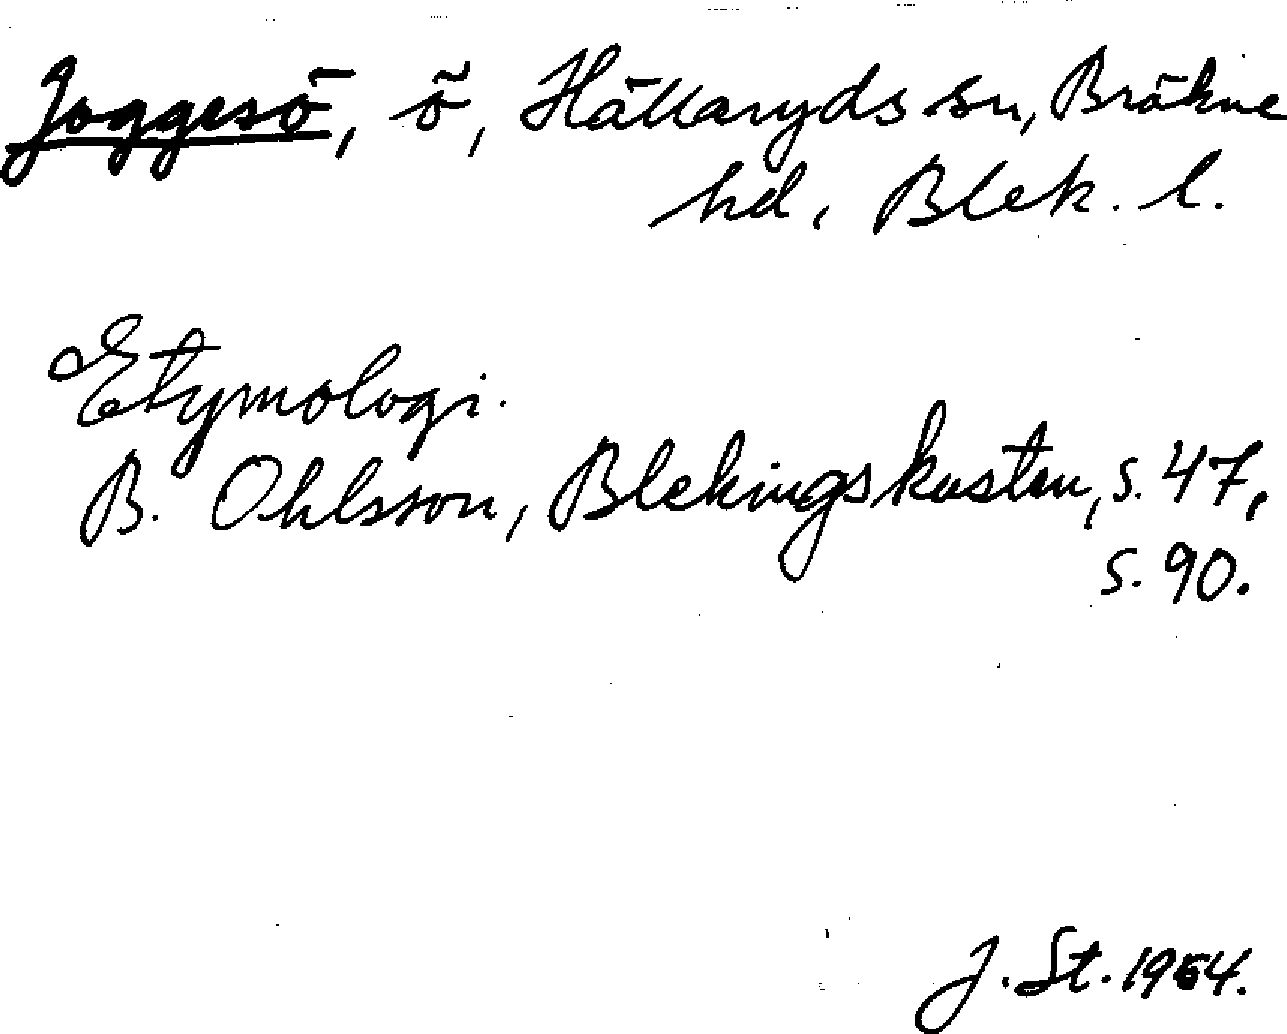 Joggesö, ö, Hällaryds sn, Bräkne
hd, Blek. l.
Etymologi.
B. Ohlsson, Blekingskusten, s. 47,
s. 90.
J. St. 1964.